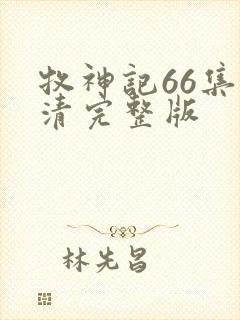 牧神記66集
清完整版
林先昌